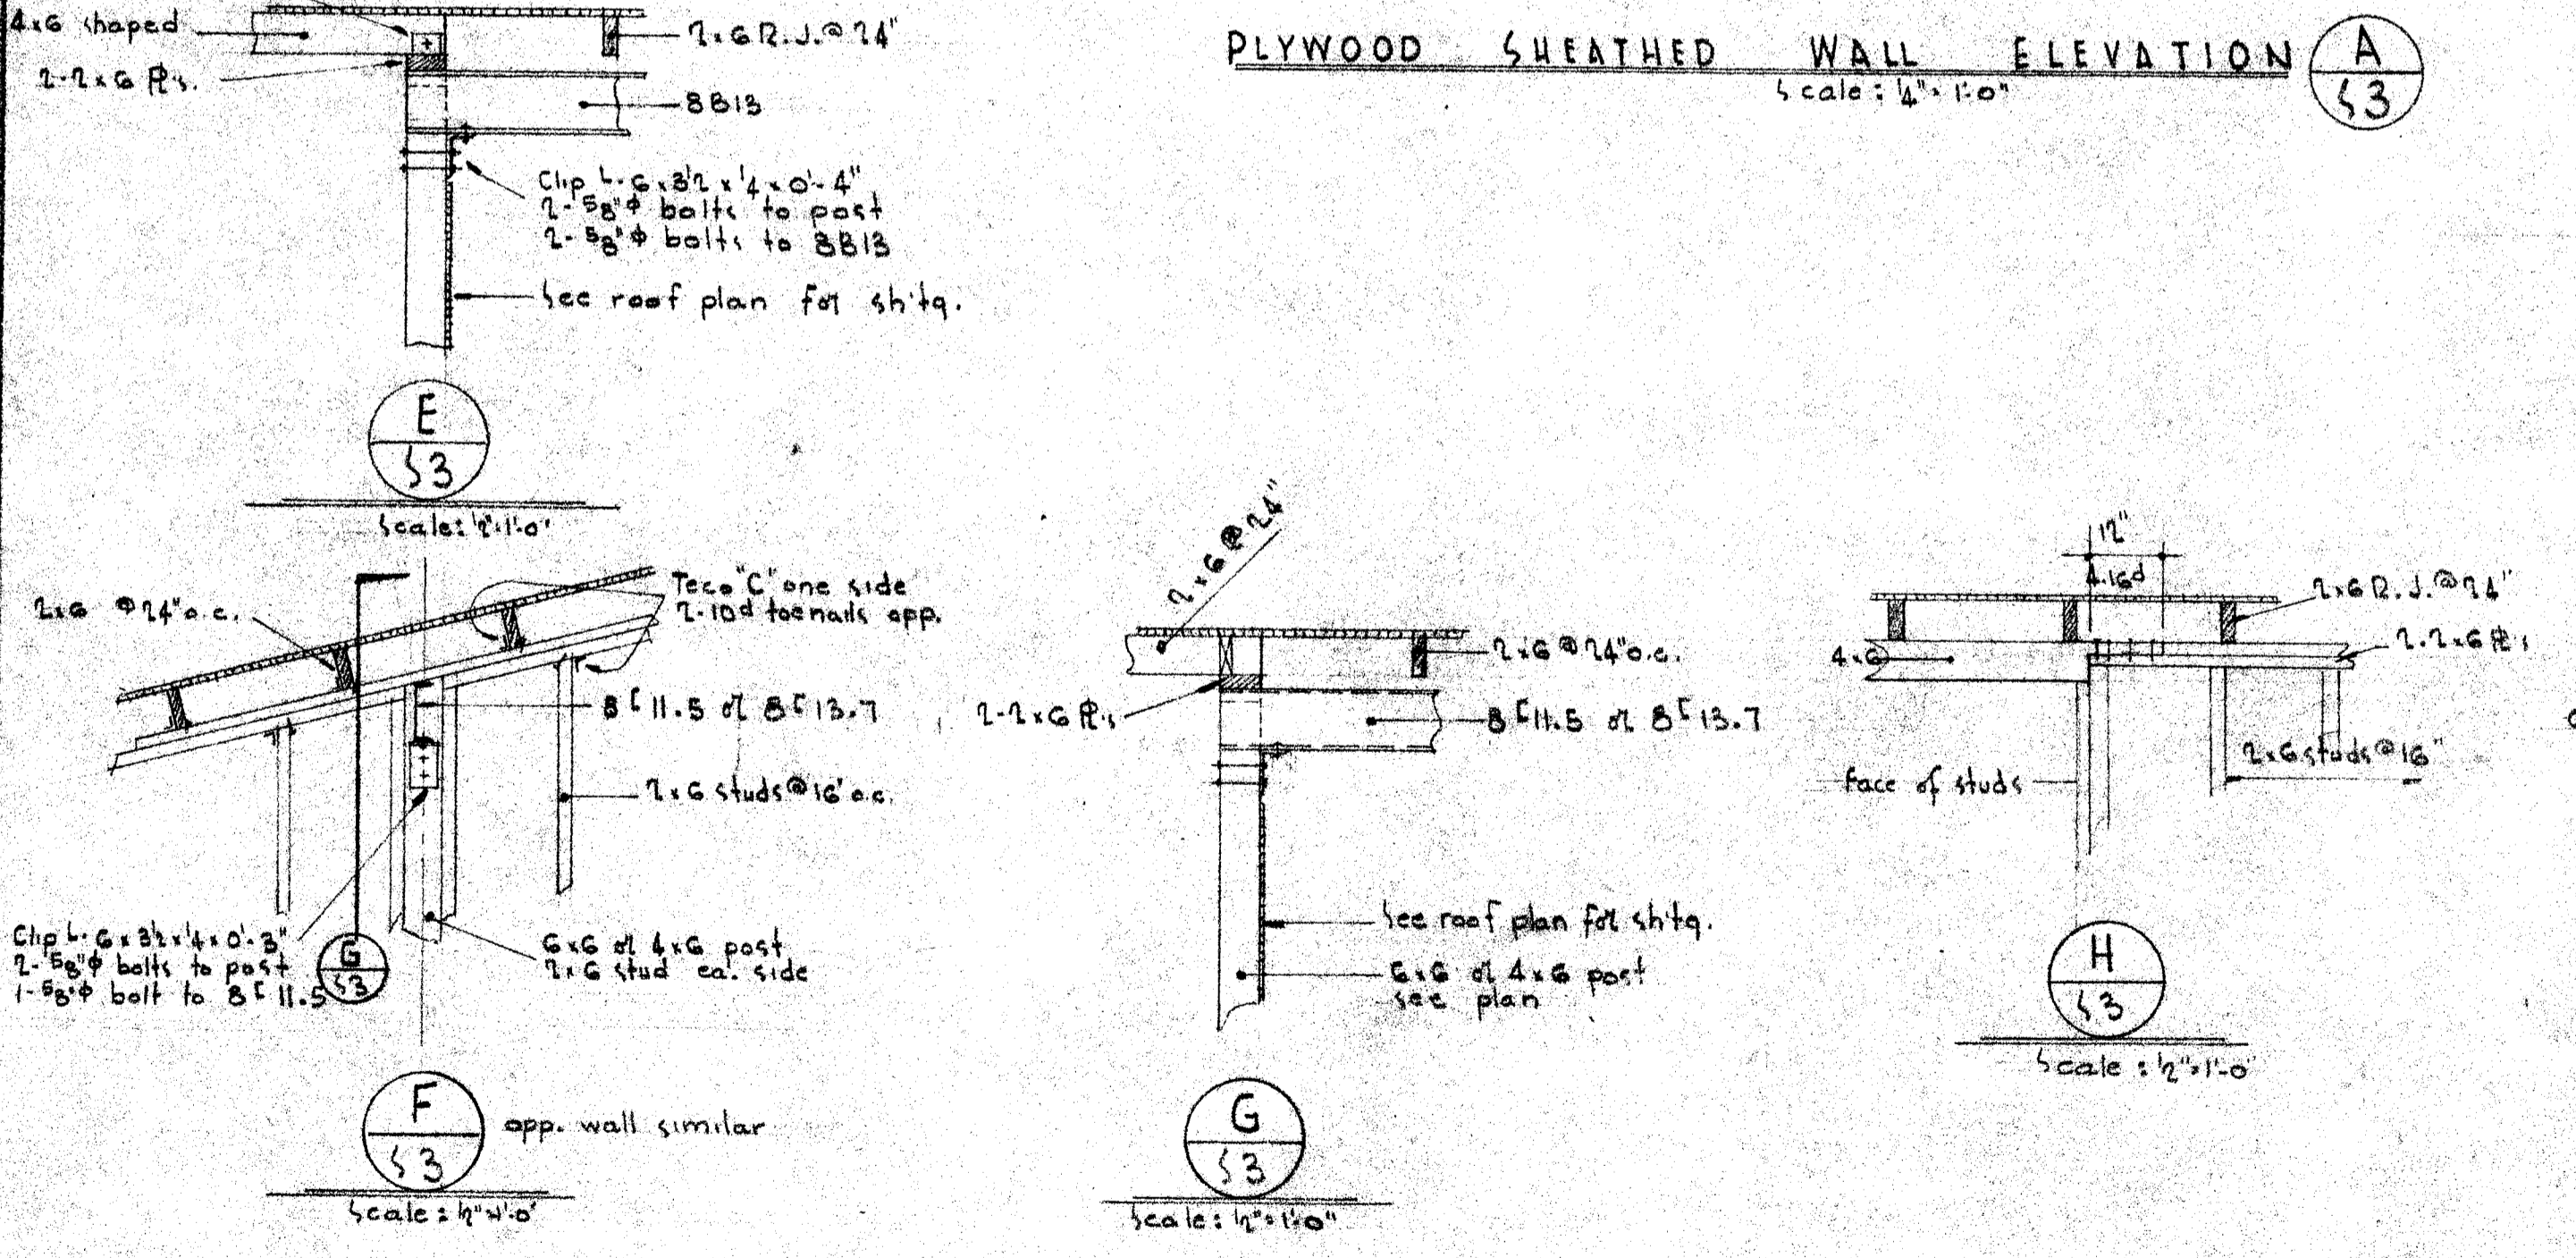 4x6 shaped
2-2x6 PL's.
2x6 R.J.@24"
8B13
Clip L-6x3½x¼x0'-4"
2-⅝"ϕ bolts to post
2-⅝"ϕ bolts to 8B13
See roof plan for sh't'g.
E
S3
Scale: ½"=1'-0"
PLYWOOD SHEATHED WALL ELEVATION
Scale: ¼"=1'-0"
A
S3
2x6 @24"o.c.
Teco "C" one side
2-10d toenails opp.
8[11.5 or 8[13.7
2x6 studs@16"o.c.
Clip L-6x3½x¼x0'-3"
2-⅝"ϕ bolts to post
1-⅝"ϕ bolt to 8[11.5
G
S3
6x6 or 4x6 post
2x6 stud ea. side
F
S3
opp. wall similar
Scale: ½"=1'-0"
2x6@24"
2x6@24"o.c.
2-2x6 PL's
8[11.5 or 8[13.7
See roof plan for sh't'g.
6x6 or 4x6 post
see plan
G
S3
Scale: ½"=1'-0"
12"
4-16d
2x6 R.J.@24"
2-2x6 PL's
4x6
2x6 studs@16"
face of studs
H
S3
Scale: ½"=1'-0"